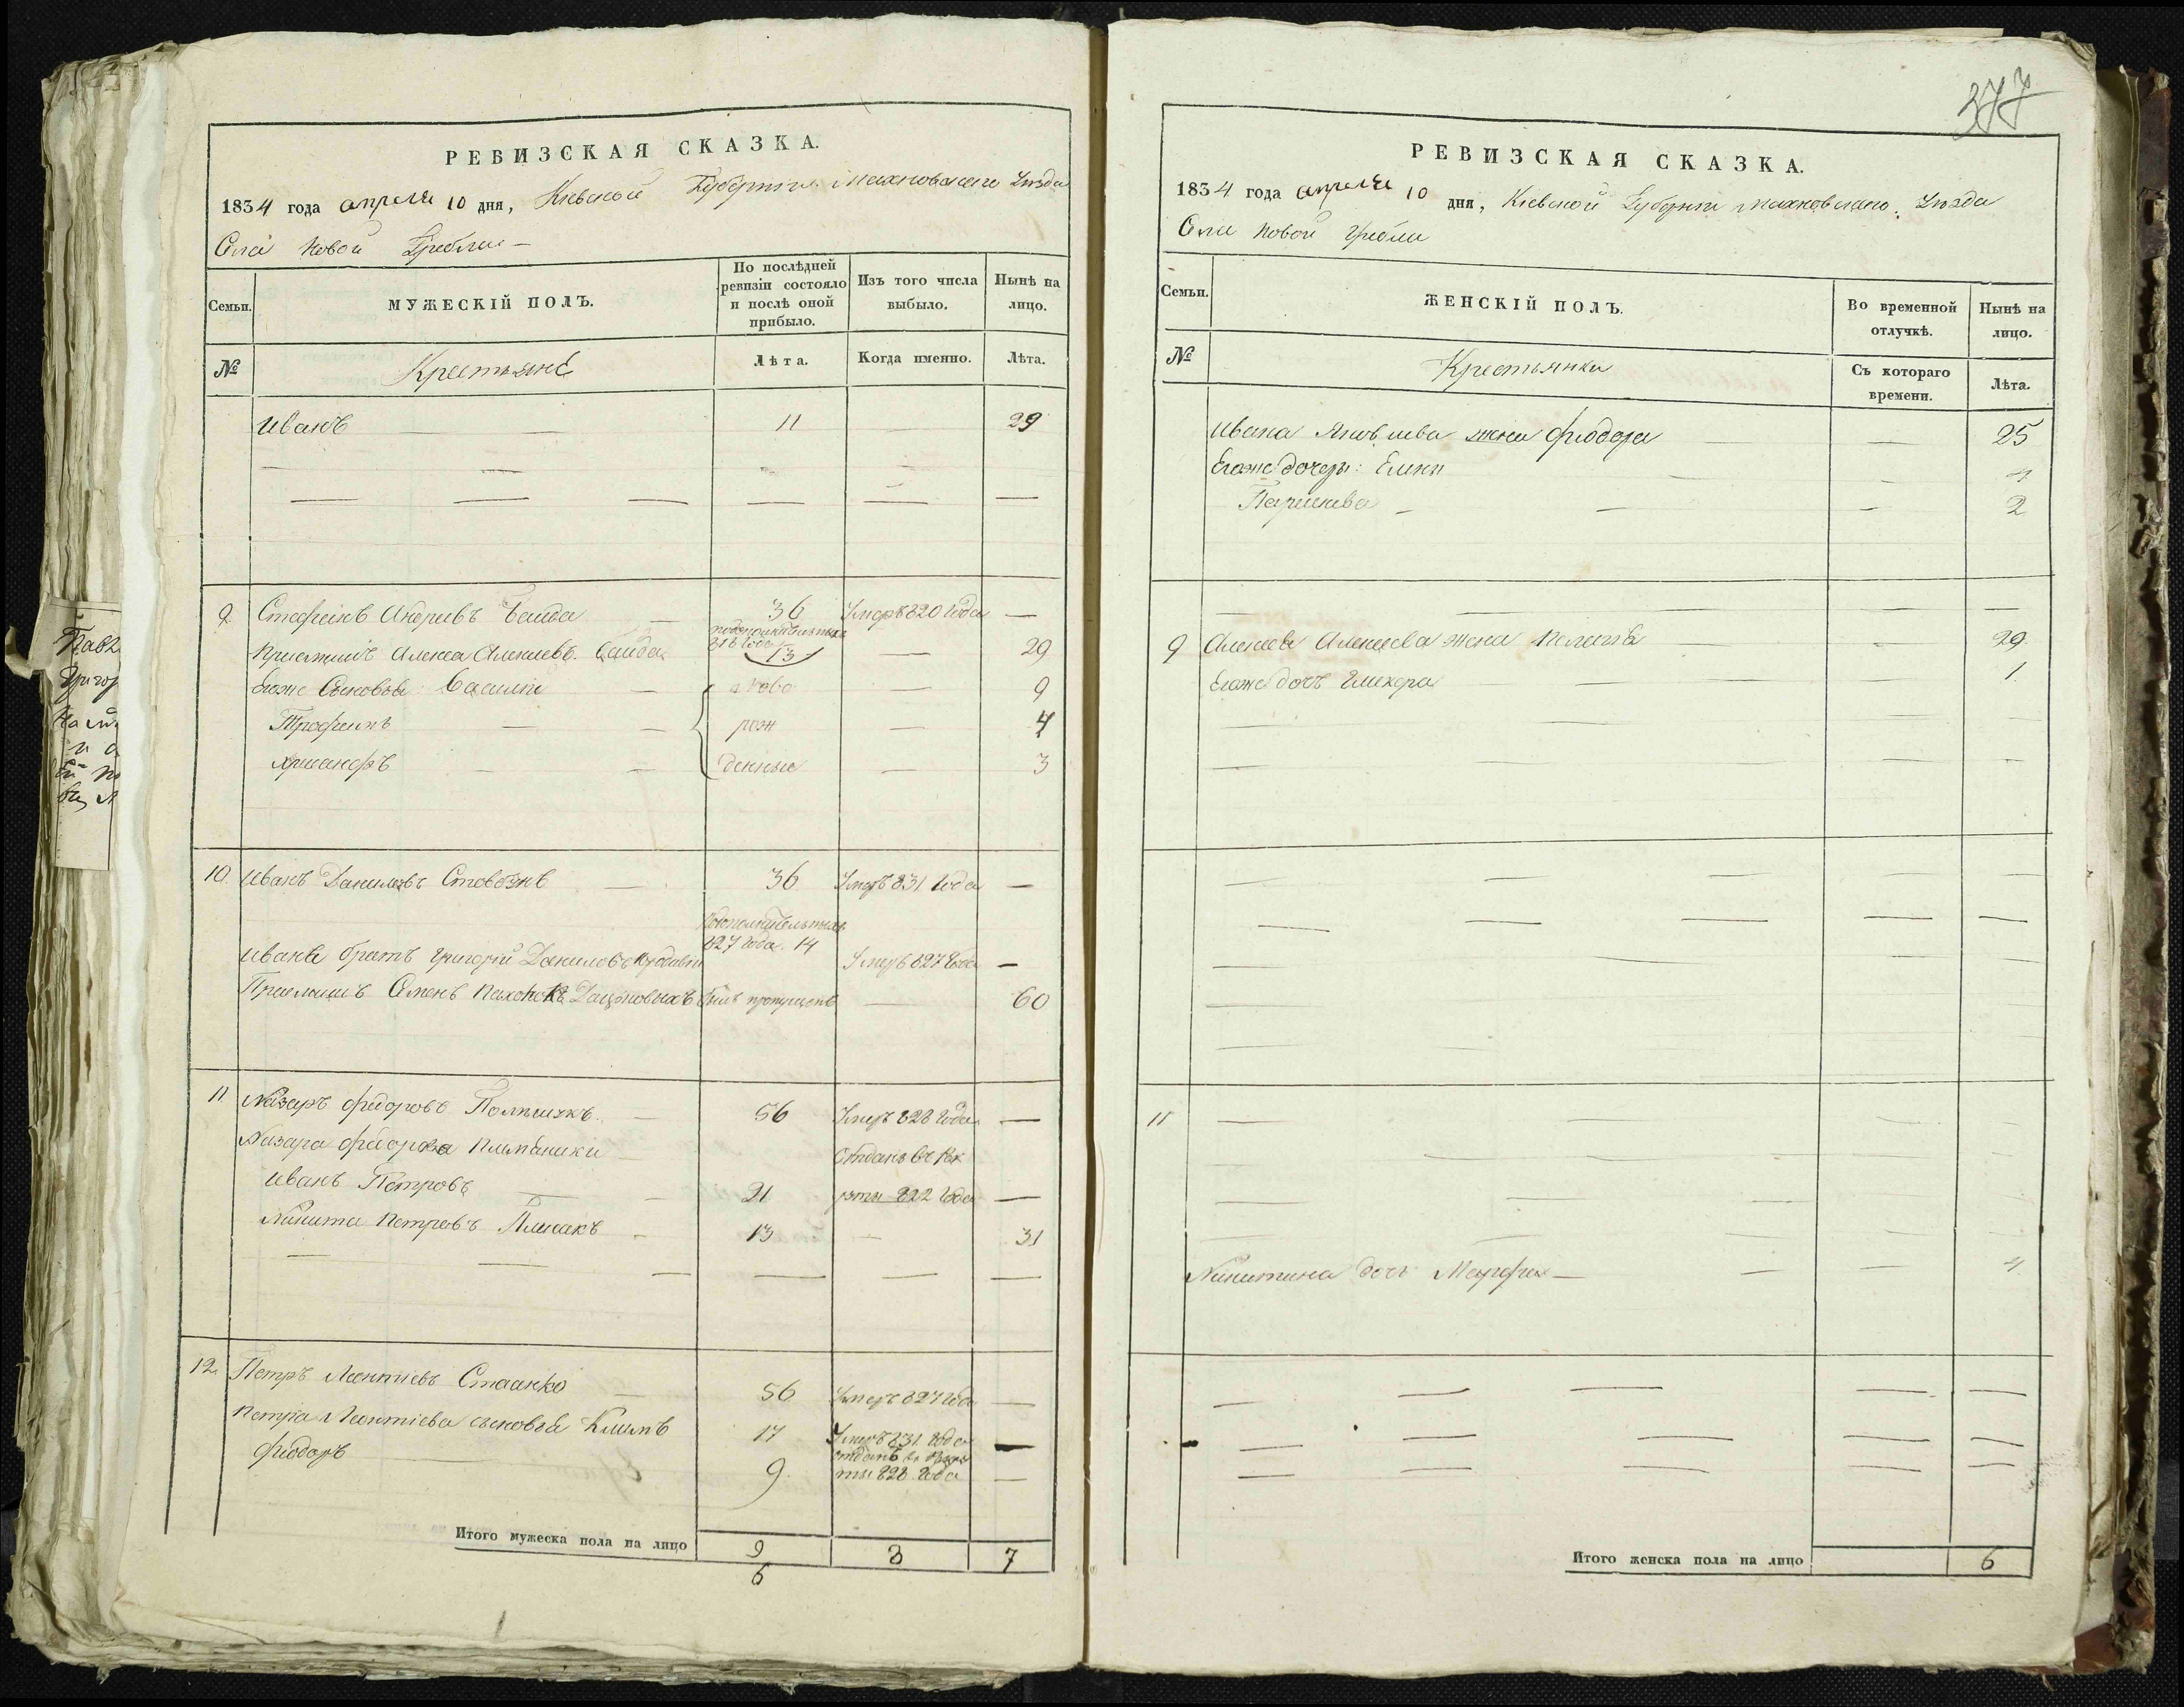 377
РЕВИЗСКАЯ СКАЗКА.
1834 года апреля 10 дня, Кіевской Губерніи Махновскаго Уезда
Села Новой Гребли
Семьи.
МУЖЕСКІЙ ПОЛЪ.
По послѣдней ревизіи состояло и послѣ оной прибыло.
Изъ того числа выбыло.
Нынѣ на лицо.
№
Крестьяне
Лѣта.
Когда именно.
Лѣта.
Иванъ 11 29
9. Стефанъ Андреевъ 36 Умеръ 820 года
Приемышъ Алексѣй Алексѣевъ 13 29
Егоже Сыновья: Василій ново 9
Трофимъ рож 4
Хрисанфъ денные 3
10. Иванъ Даниловъ 36 Умеръ 831 года
827 года. 14
Ивана братъ Григорій Даниловъ Умеръ 827 года
Приемышъ Семенъ былъ пропущенъ 60
11. Назаръ Федоровъ 56 Умеръ 828 года
Назара Федорова племянники Отданъ въ рек
Иванъ Петровъ 21 руты 822 года
Никита Петровъ 13 31
12. Петръ Леонтіевъ 56 Умеръ 827 года
Петра Леонтіева сыновья Климъ 17 Умеръ 831 года
Фіодоръ 9. отданъ въ рекру
ты 828 года
Итого мужеска пола на лицо 9 8 7
6
РЕВИЗСКАЯ СКАЗКА.
1834 года апреля 10 дня, Кіевской Губерніи Махновскаго Уезда
Села Новой Гребли
Семьи.
ЖЕНСКІЙ ПОЛЪ.
Во временной отлучкѣ.
Нынѣ на лицо.
№
Крестьянки
Съ котораго времени.
Лѣта.
Ивана Яковлева жена Фіодора 25
Егоже дочери: Елена 4
Параскева 2
9 Алексея Алексеева жена Пелагія 29
Егоже дочь Гликера 1
11
Никитина дочь Марфа 4
Итого женска пола на лицо 6